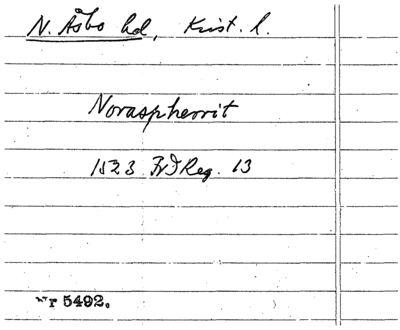 N. Åsbo hd, Krist. l.
Noraspherrit
1523 FrIReg. 13
Nr 5492.